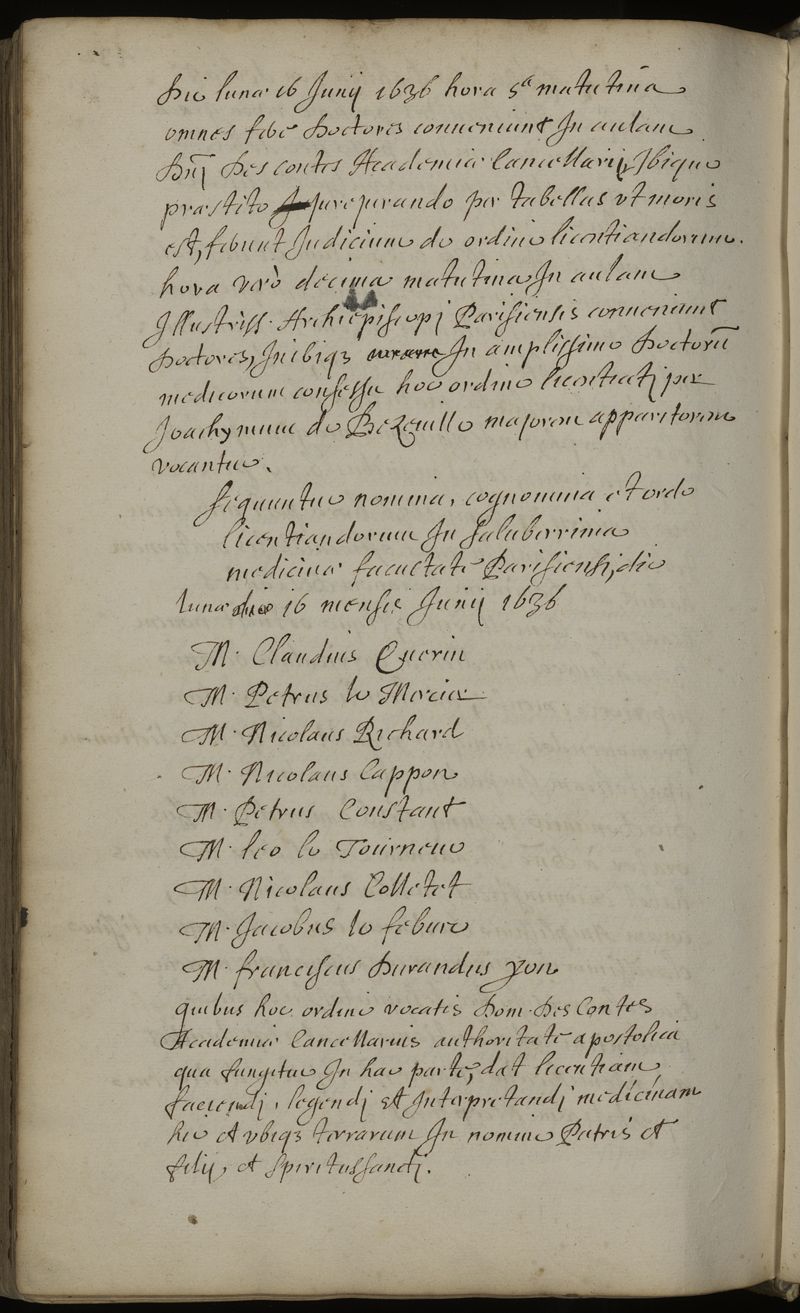 Die lunæ 16 Junij 1636 hora 5ᵃ matutina
omnes ferè Doctores conveniunt In aulam
Dn̄j Des contes Academiæ Cancellarij, Ibique
præstito jurejurando per tabellas vt moris
est, ferunt Judicium de ordine licentiandorum.
hora verò decima matutina In aulam
Illustriss. Archiepiscopj Parisiensis conveniunt
Doctores, Inibiqȝ In amplissimo Doctorū
medicorum consessu hoc ordine licentiatj per
Joachymum de Bezeuille majorem apparitorem
vocantur.
sequuntur nomina, cognomina et ordo
licentiandorum In saluberrima
medicinæ facultate Parisiensi, die
lunæ 16 mensis Junij 1636
M. Claudius Guerin
M. Petrus le Mercier
M. Nicolaus Richard
M. Nicolaus Cappon
M. Petrus Constant
M. leo le Tourneur
M. Nicolaus Colletet
M. Jacobus le febure
M. franciscus Durandus yon
quibus hoc ordine vocatis Dom. Des Contes
Academiæ Cancellarius authoritate apostolica
qua fungitur In hac parte, dat licentiam
faciendj, legendj et Interpretandj medicinam
hic et vbiqȝ terrarum In nomine Patris et
filij, et spiritus sanctj.